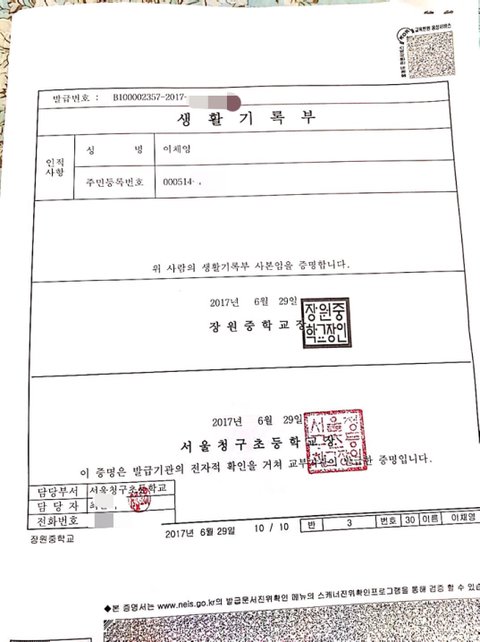 발급번호 : B100002357-2017-
생 활 기 록 부
인적
사항
성 명 이채영
주민등록번호 000514-
위 사람의 생활기록부 사본임을 증명합니다.
2017년 6월 29일
장 원 중 학 교 장
장원중
학교장인
2017년 6월 29일
서 울 청 구 초 등 학 교 장
이 증명은 발급기관의 전자적 확인을 거쳐 증명입니다.
담당부서 서울청구초등학교
담 당 자
전화번호
장원중학교
2017년 6월 29일 10 / 10 반 3 번호 30 이름 이채영
◆본 증명서는 www.neis.go.kr의 발급문서진위확인 메뉴의 스캐너진위확인프로그램을 통해 검증 할 수 있습